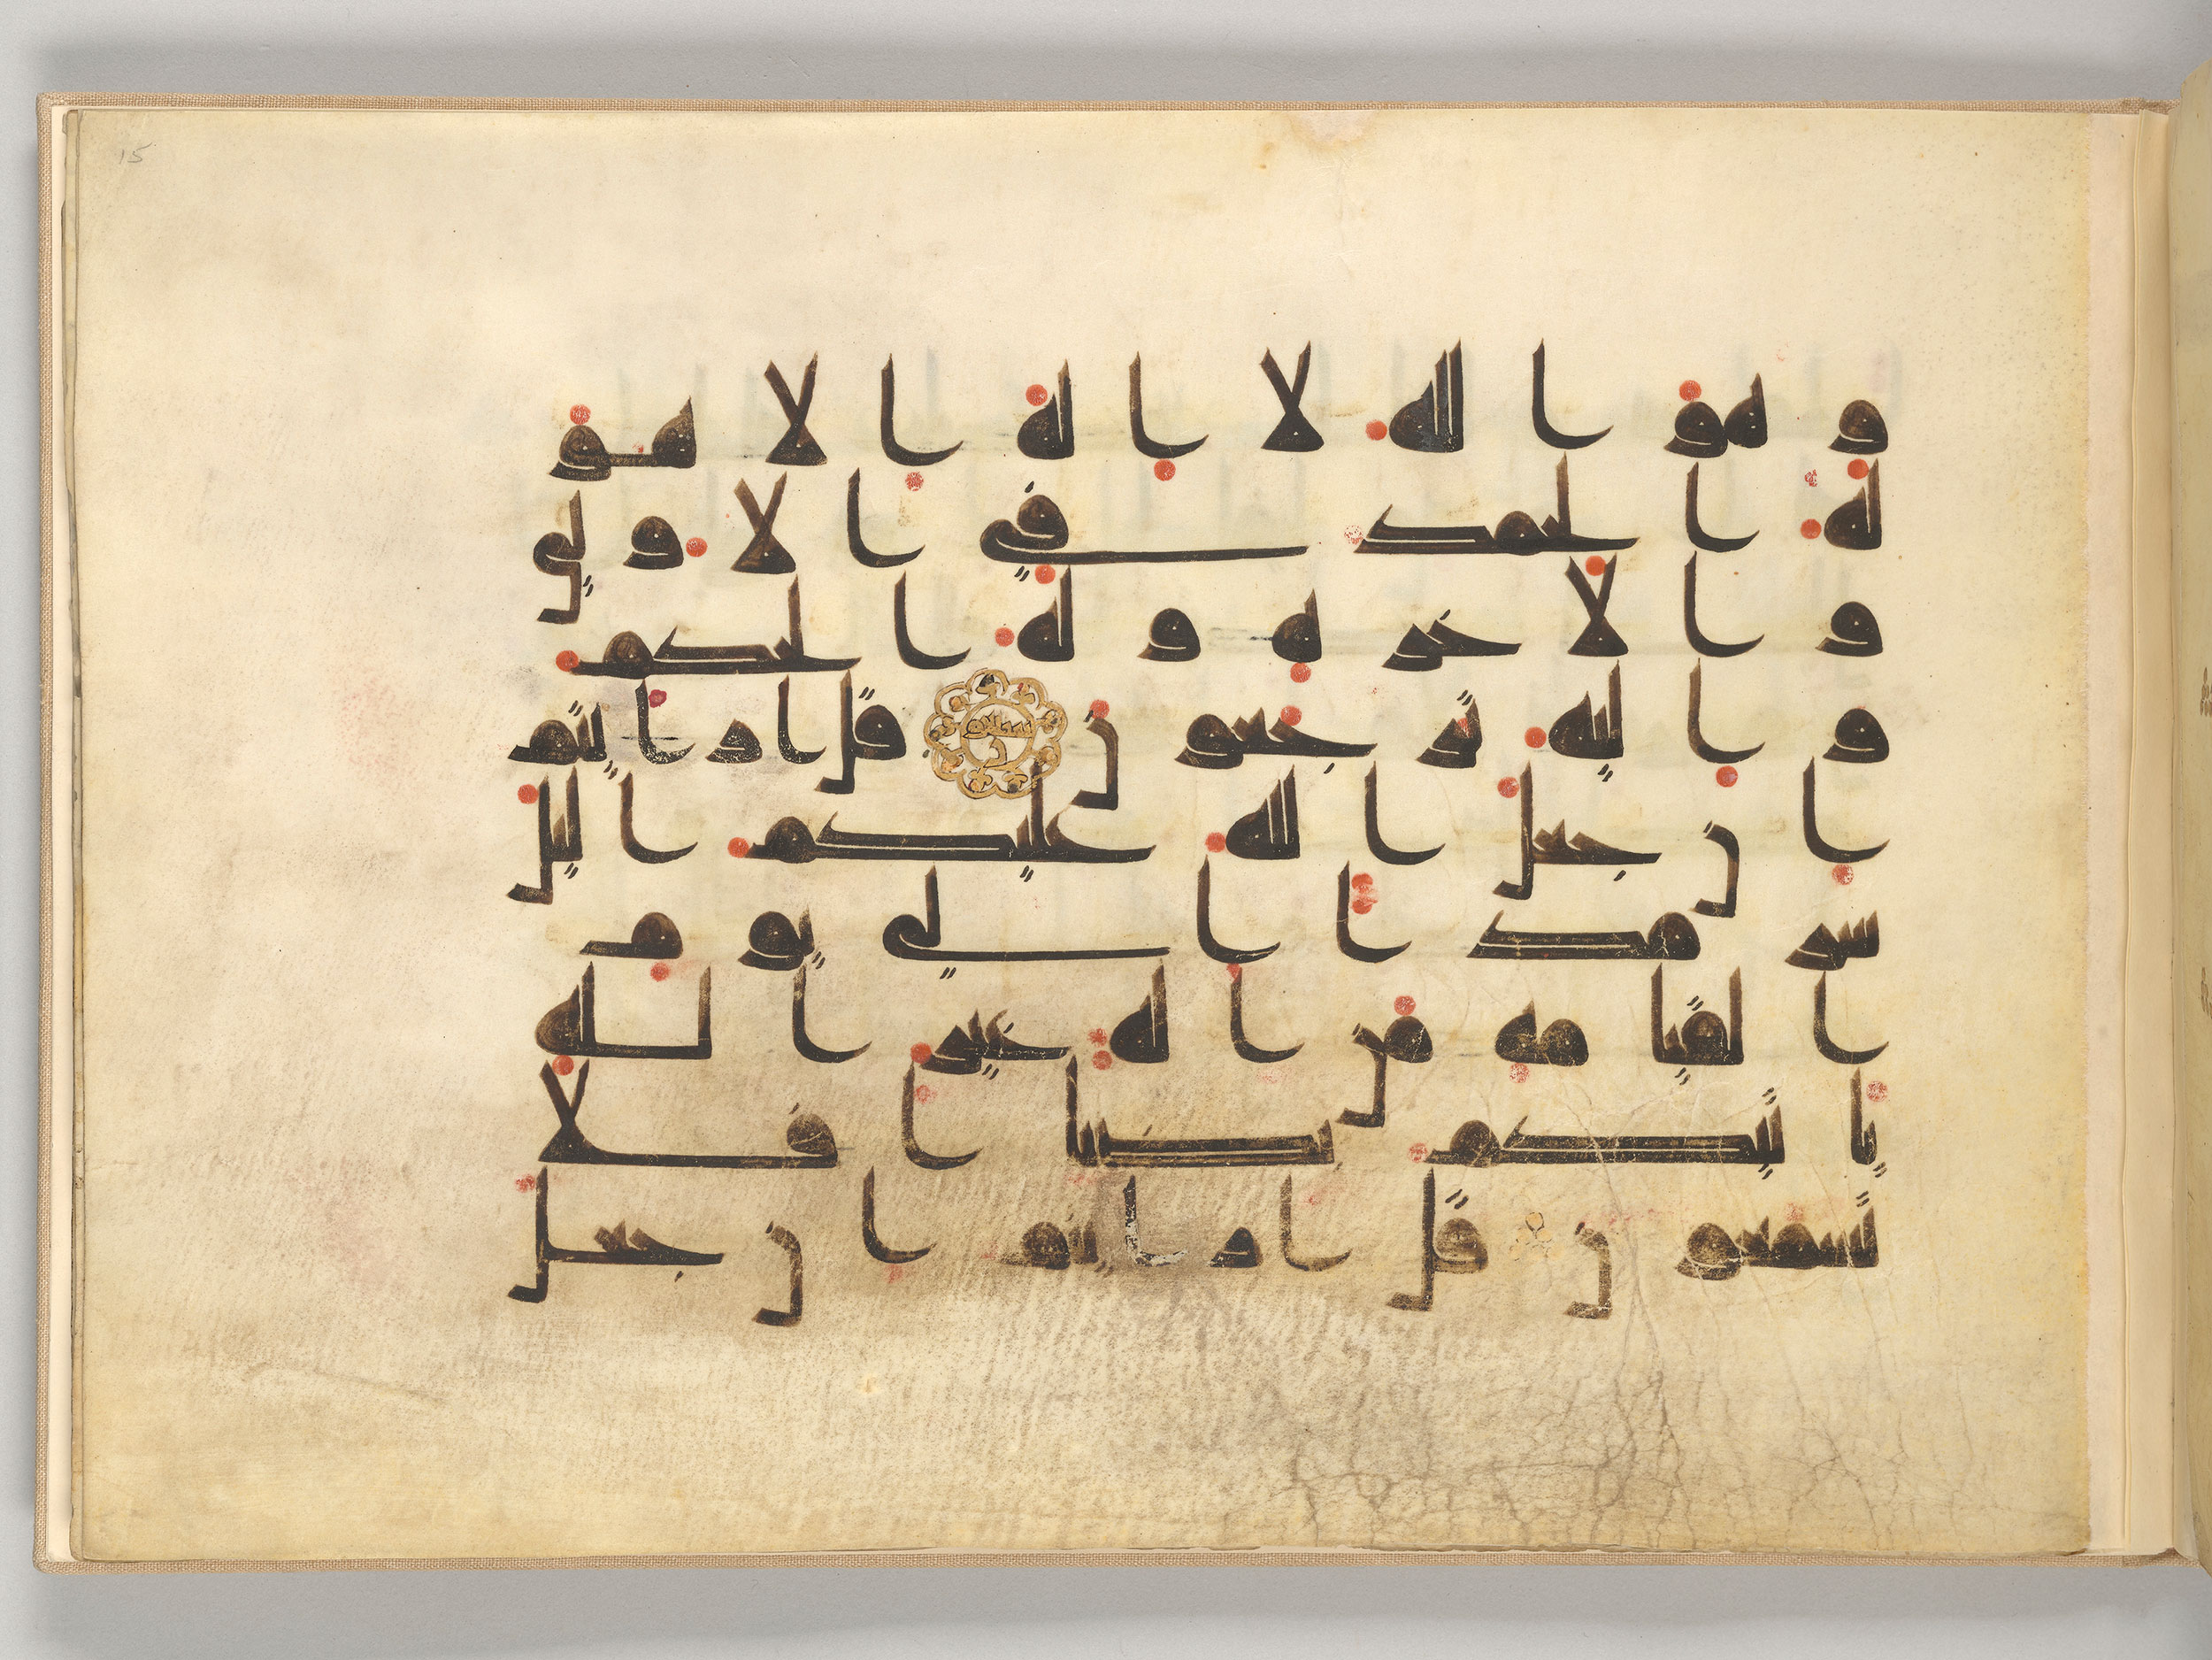 15
وهو الله لا اله الا هو
له الحمد في الاولى
والاخرة وله الحكم
واليه ترجعون سبعون قل ارايتم
ان جعل الله عليكم اليل
سرمدا الى يوم
القيمة من اله غير الله
ياتيكم بضيا افلا
تسمعون قل ارايتم ان جعل